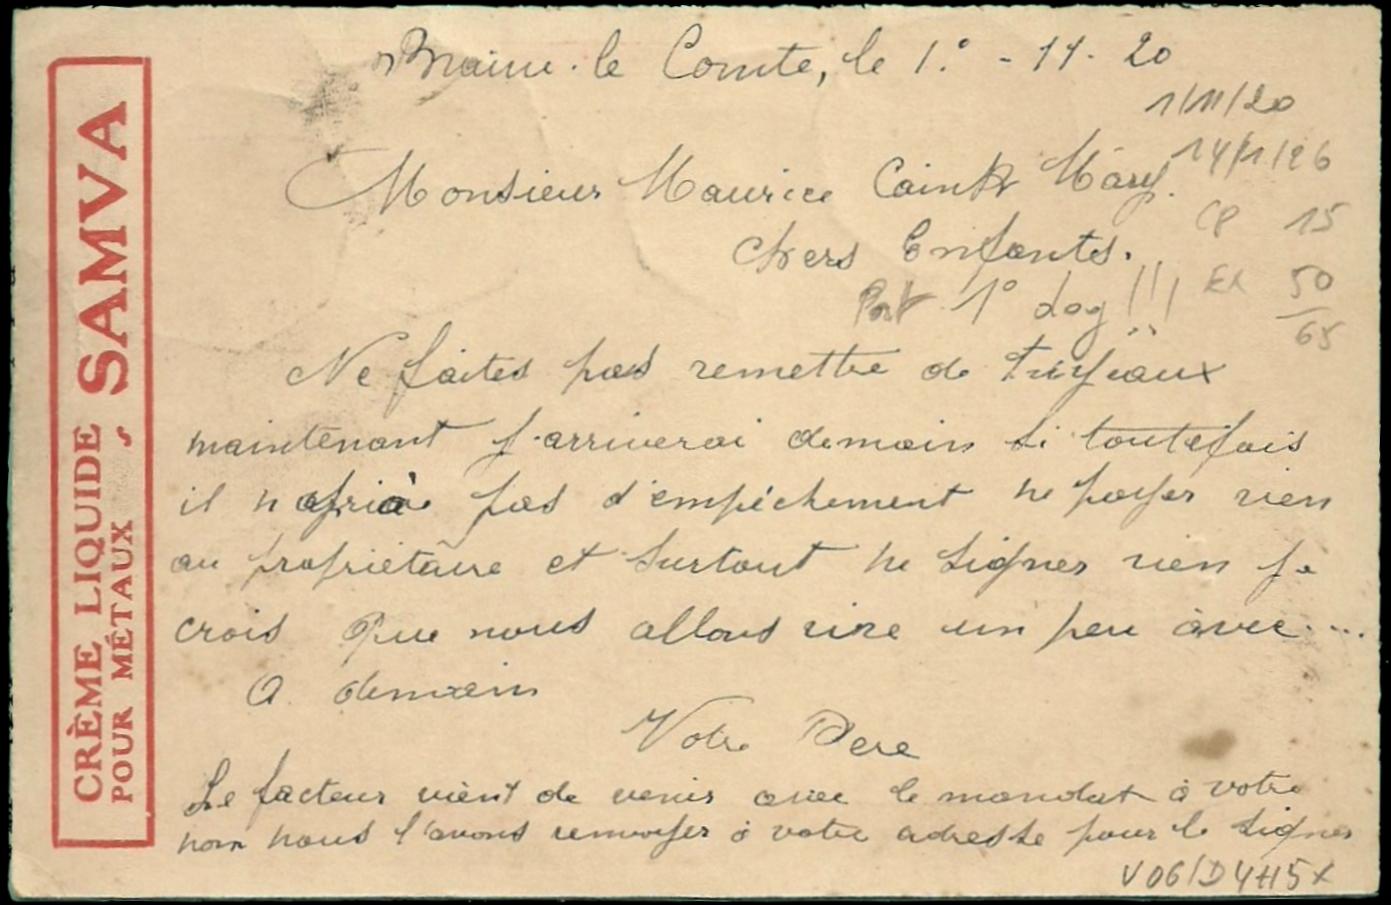 Braine-le Comte, le 1.° - 11 - 20
1/11/20
Monsieur Maurice Mary.
14/1/26
CP 15
Chers Enfants.
Port 1° dag !!!
Ex 50
65
Ne faites pas remettre de tuyeaux
maintenant j'arriverai demain si toutefois
il n'ayria pas d'empéchement ne payer rien
au propriétaire et surtout ne signer rien je
crois que nous allons rire un peu avec....
A demain
Votre Pere
Le facteur vient de venir avec le mandat à votre
nom nous l'avons renvoyer à votre adresse pour le signer
V06/D4H5X
CRÈME LIQUIDE
POUR MÉTAUX
SAMVA